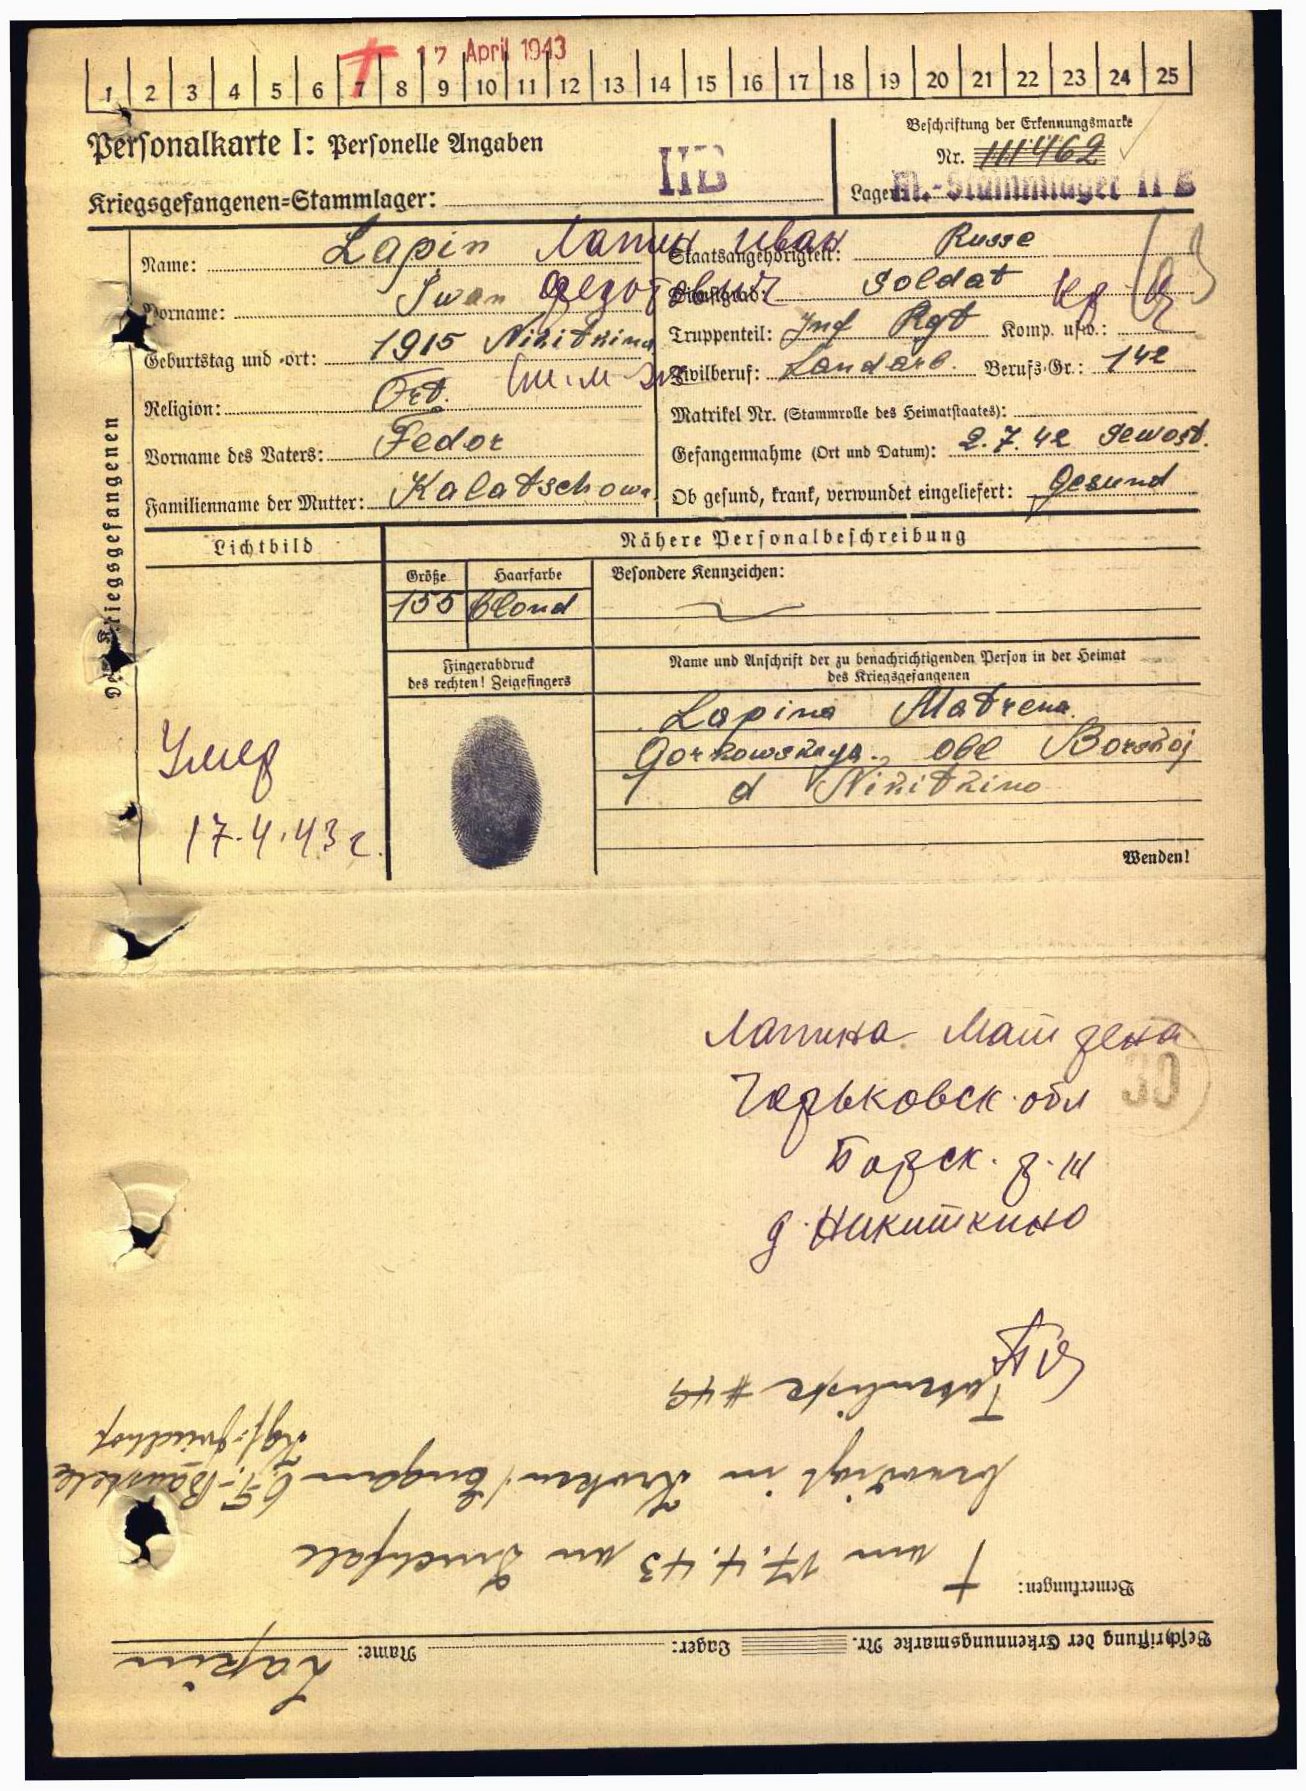 17 April 1943
1 2 3 4 5 6 7 8 9 10 11 12 13 14 15 16 17 18 19 20 21 22 23 24 25
Personalkarte I: Personelle Angaben
Beschriftung der Erkennungsmarke
Nr. 111462
Kriegsgefangenen-Stammlager: IIB
Lager: M.-Stammlager II B
Des Kriegsgefangenen
Name: Lapin Лапин Иван
Staatsangehörigkeit: Russe
Vorname: Iwan Федорович
Dienstgrad: Soldat кр
Geburtstag und -ort: 1915 Nikitkino
Truppenteil: Inf Rgt Komp. usw.:
Religion: Ort.
Zivilberuf: Landarb. Berufs-Gr.: 142
Matrikel Nr. (Stammrolle des Heimatstaates):
Vorname des Vaters: Fedor
Gefangennahme (Ort und Datum): 2.7.42 Sewost.
Familienname der Mutter: Kalatschowa
Ob gesund, krank, verwundet eingeliefert: Gesund
Lichtbild
Nähere Personalbeschreibung
Größe Haarfarbe Besondere Kennzeichen:
155 blond
Fingerabdruck
des rechten! Zeigefingers
Name und Anschrift der zu benachrichtigenden Person in der Heimat
des Kriegsgefangenen
Lapina Matrena
Gorkowskaya obl Borskoj
d Nikitkino
Умер
17.4.43 г.
Wenden!
Лапина Матрена
30
Горьковск. обл
Борск. р-н
д. Никиткино
Beschriftung der Erkennungsmarke Nr. Lager: Name: Lapin
Bemerkungen: † am 17.4.43 an Durchfall
beerdigt in
Kgf.-Friedhof
Totenliste # 49